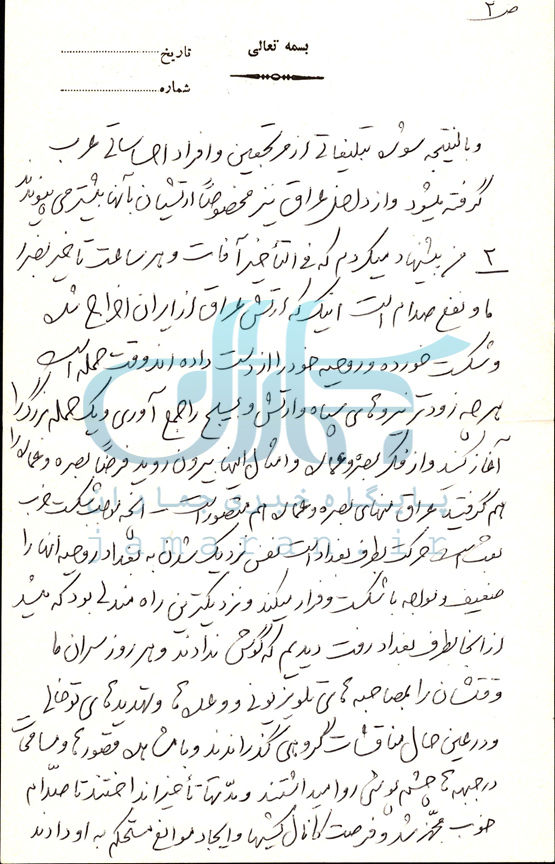 ص ۲
بسمه تعالی
تاریخ
شماره
و بالنتیجه سوژه تبلیغاتی از مرتجعین و افراد احساساتی عرب
گرفته میشود و از داخل عراق نیز مخصوصاً ارتشیان بآنها بیشتر می‌پیوندند
۲ من پیشنهاد میکردم که فی التأخیر آفات و هر ساعت تأخیر بضرر
ما و نفع صدام است اینک که ارتش عراق از ایران اخراج شده
و شکست خورده و روحیه خود را از دست داده اند وقت حمله است
هر چه زودتر نیروهای سپاه و ارتش و بسیج را جمع آوری و یک حمله بزرگ را
آغاز کنند و از فکر بصره و عماره و امثال اینها بیرون روید فرضاً بصره و عماره را
هم گرفتید عراق منهای بصره و عماره هم متصور است آنچه موجب شکست حزب
بعث است حرکت بطرف بغداد است نفس نزدیک شدن به بغداد روحیه آنها را
ضعیف و مواجه با شکست و فرار میکند و نزدیکترین راه مندلی بود که میشد
از آنجا بطرف بغداد رفت دیدیم که گوش ندادند و هر روز سران ما
وقتشان را بمصاحبه های تلویزیونی و وعده ها و تهدیدهای توخالی
و در عین حال مناقشات گروهی گذراندند و با مشاهده قصورها و
در جبهه ها چشم پوشی روا میداشتند و مدّتها تأخیر انداختند تا صدّام
خوب مجهّز شد و فرصت کانال کشیها و ایجاد موانع مستحکم به او دادند
پایگاه خبری جماران
jamaran.ir